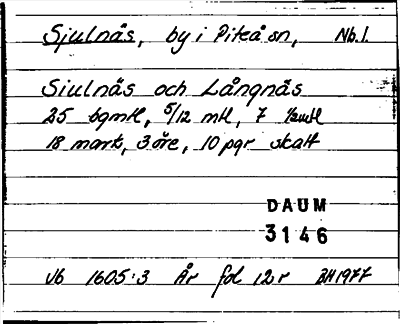 Sjulnäs, by i Piteå sn, Nb.l.
Siulnäs och Långnäs
25 bgmtl, 5/12 mtl, 7 1/2mtl
18 mark, 3 öre, 10 pgr skatt
DAUM
3146
Vb 1605:3 År fol 12r BH1977